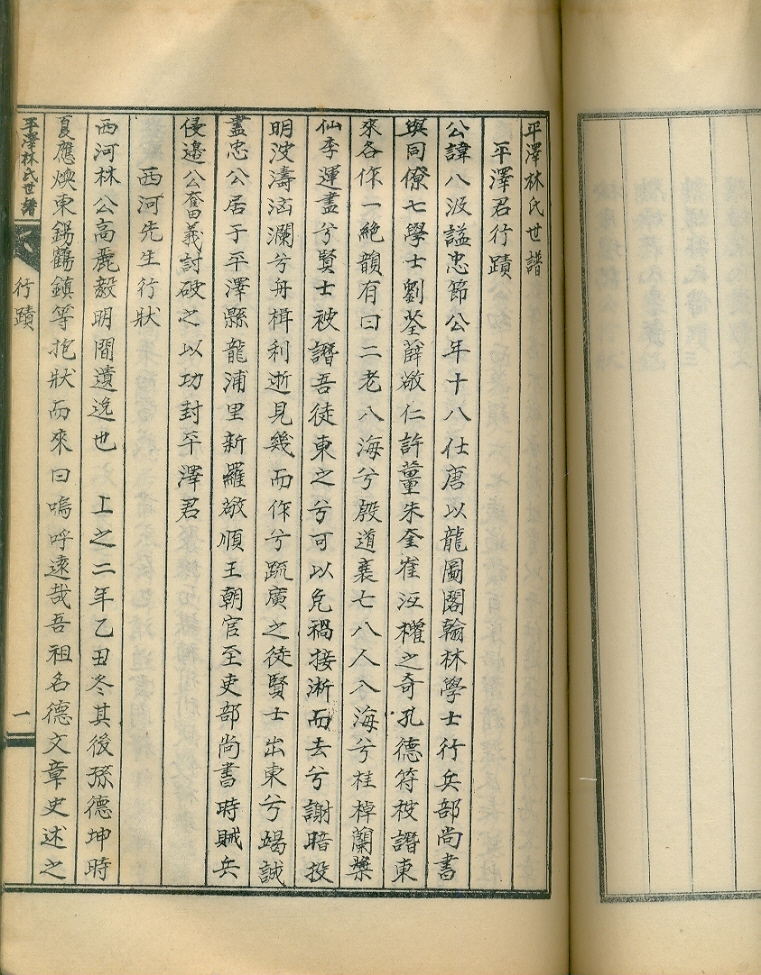 平澤林氏世譜
平澤君行蹟
公諱八汲謚忠節公年十八仕唐以龍圖閣翰林學士行兵部尚書
與同僚七學士劉荃薛敬仁許董朱奎崔沍權之奇孔德符被譖東
來各作一絶韻有曰二老八海兮殷道衰七八人入海兮桂棹蘭槳
仙李運盡兮賢士被譖吾徒東之兮可以免禍接淅而去兮謝暗投
明波濤洶瀾兮舟楫利逝見幾而作兮疏廣之徒賢士出東兮竭誠
盡忠公居于平澤縣龍浦里新羅敬順王朝官至吏部尚書時賊兵
侵邊公奮義討破之以功封平澤君
西河先生行狀
西河林公高麗毅明間遺逸也 上之二年乙丑冬其後孫德坤時
夏應煥東錫鶴鎮等抱狀而來曰嗚呼遠哉吾祖名德文章史述之
平澤林氏世譜 行蹟 一